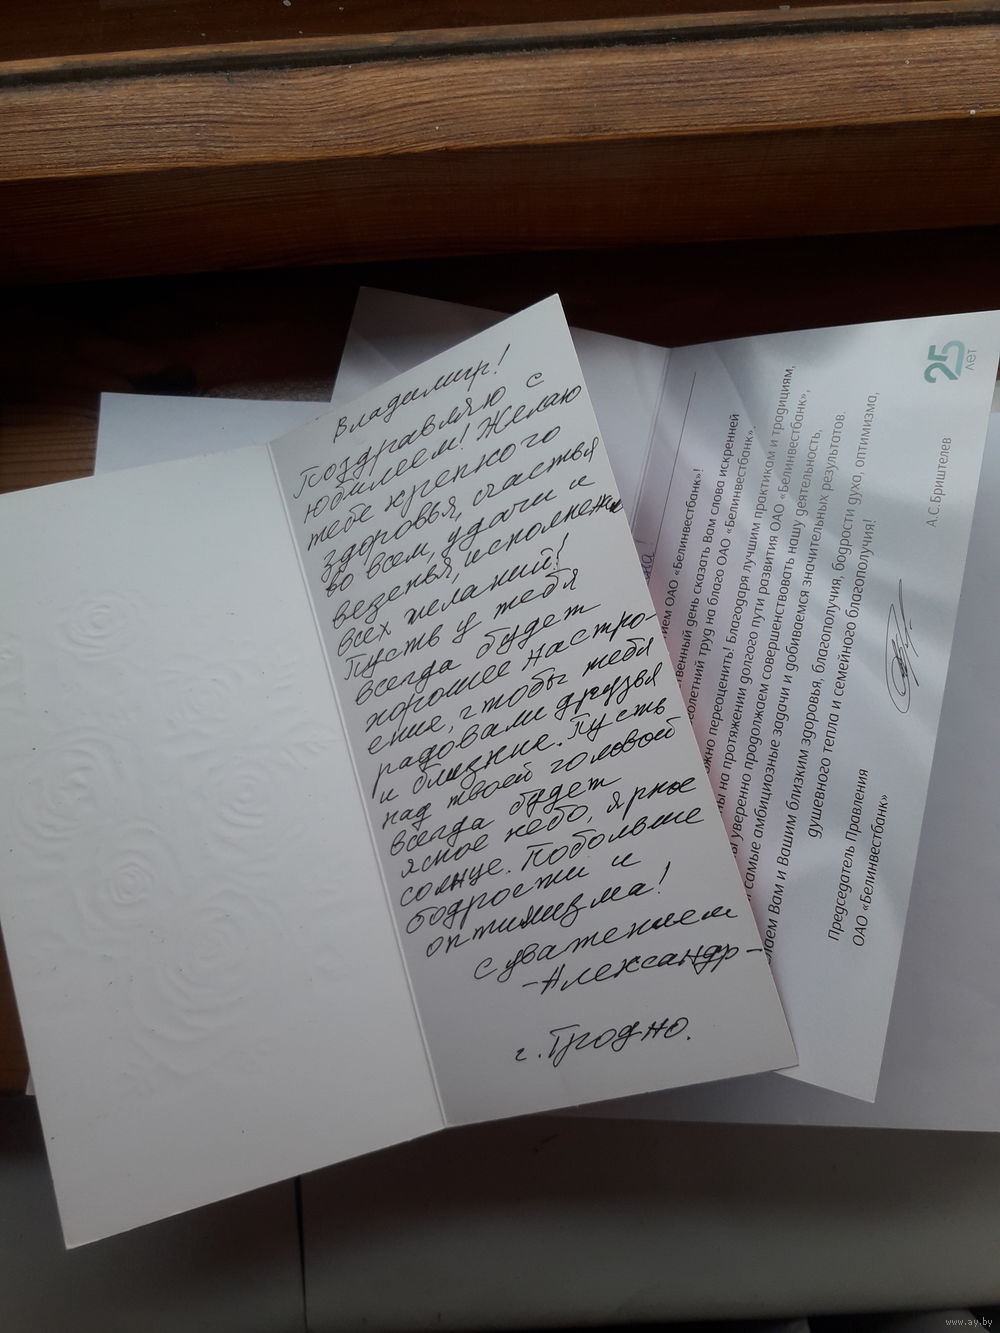 Владимир!
Поздравляю с
юбилеем! Желаю
тебе крепкого
здоровья, счастья
во всем, удачи и
везенья, исполнежия
всех желаний!
Пусть у тебя
всегда будет
хорошее настро-
ение, чтобы тебя
радовали друзья
и близкие. Пусть
над твоей головой
всегда будет
ясное небо, яркое
солнце. Побольше
бодрости и
оптимизма!
с уважением
-Александр-
г. Гродно.
25
лет
ием ОАО «Белинвестбанк»!
ственный день сказать Вам слова искренней
голетний труд на благо ОАО «Белинвестбанк».
ожно переоценить! Благодаря лучшим практикам и традициям,
ны на протяжении долгого пути развития ОАО «Белинвестбанк»,
ы уверенно продолжаем совершенствовать нашу деятельность,
самые амбициозные задачи и добиваемся значительных результатов.
лаем Вам и Вашим близким здоровья, благополучия, бодрости духа, оптимизма,
душевного тепла и семейного благополучия!
Председатель Правления
ОАО «Белинвестбанк»
А.С.Бриштелев
www.ay.by